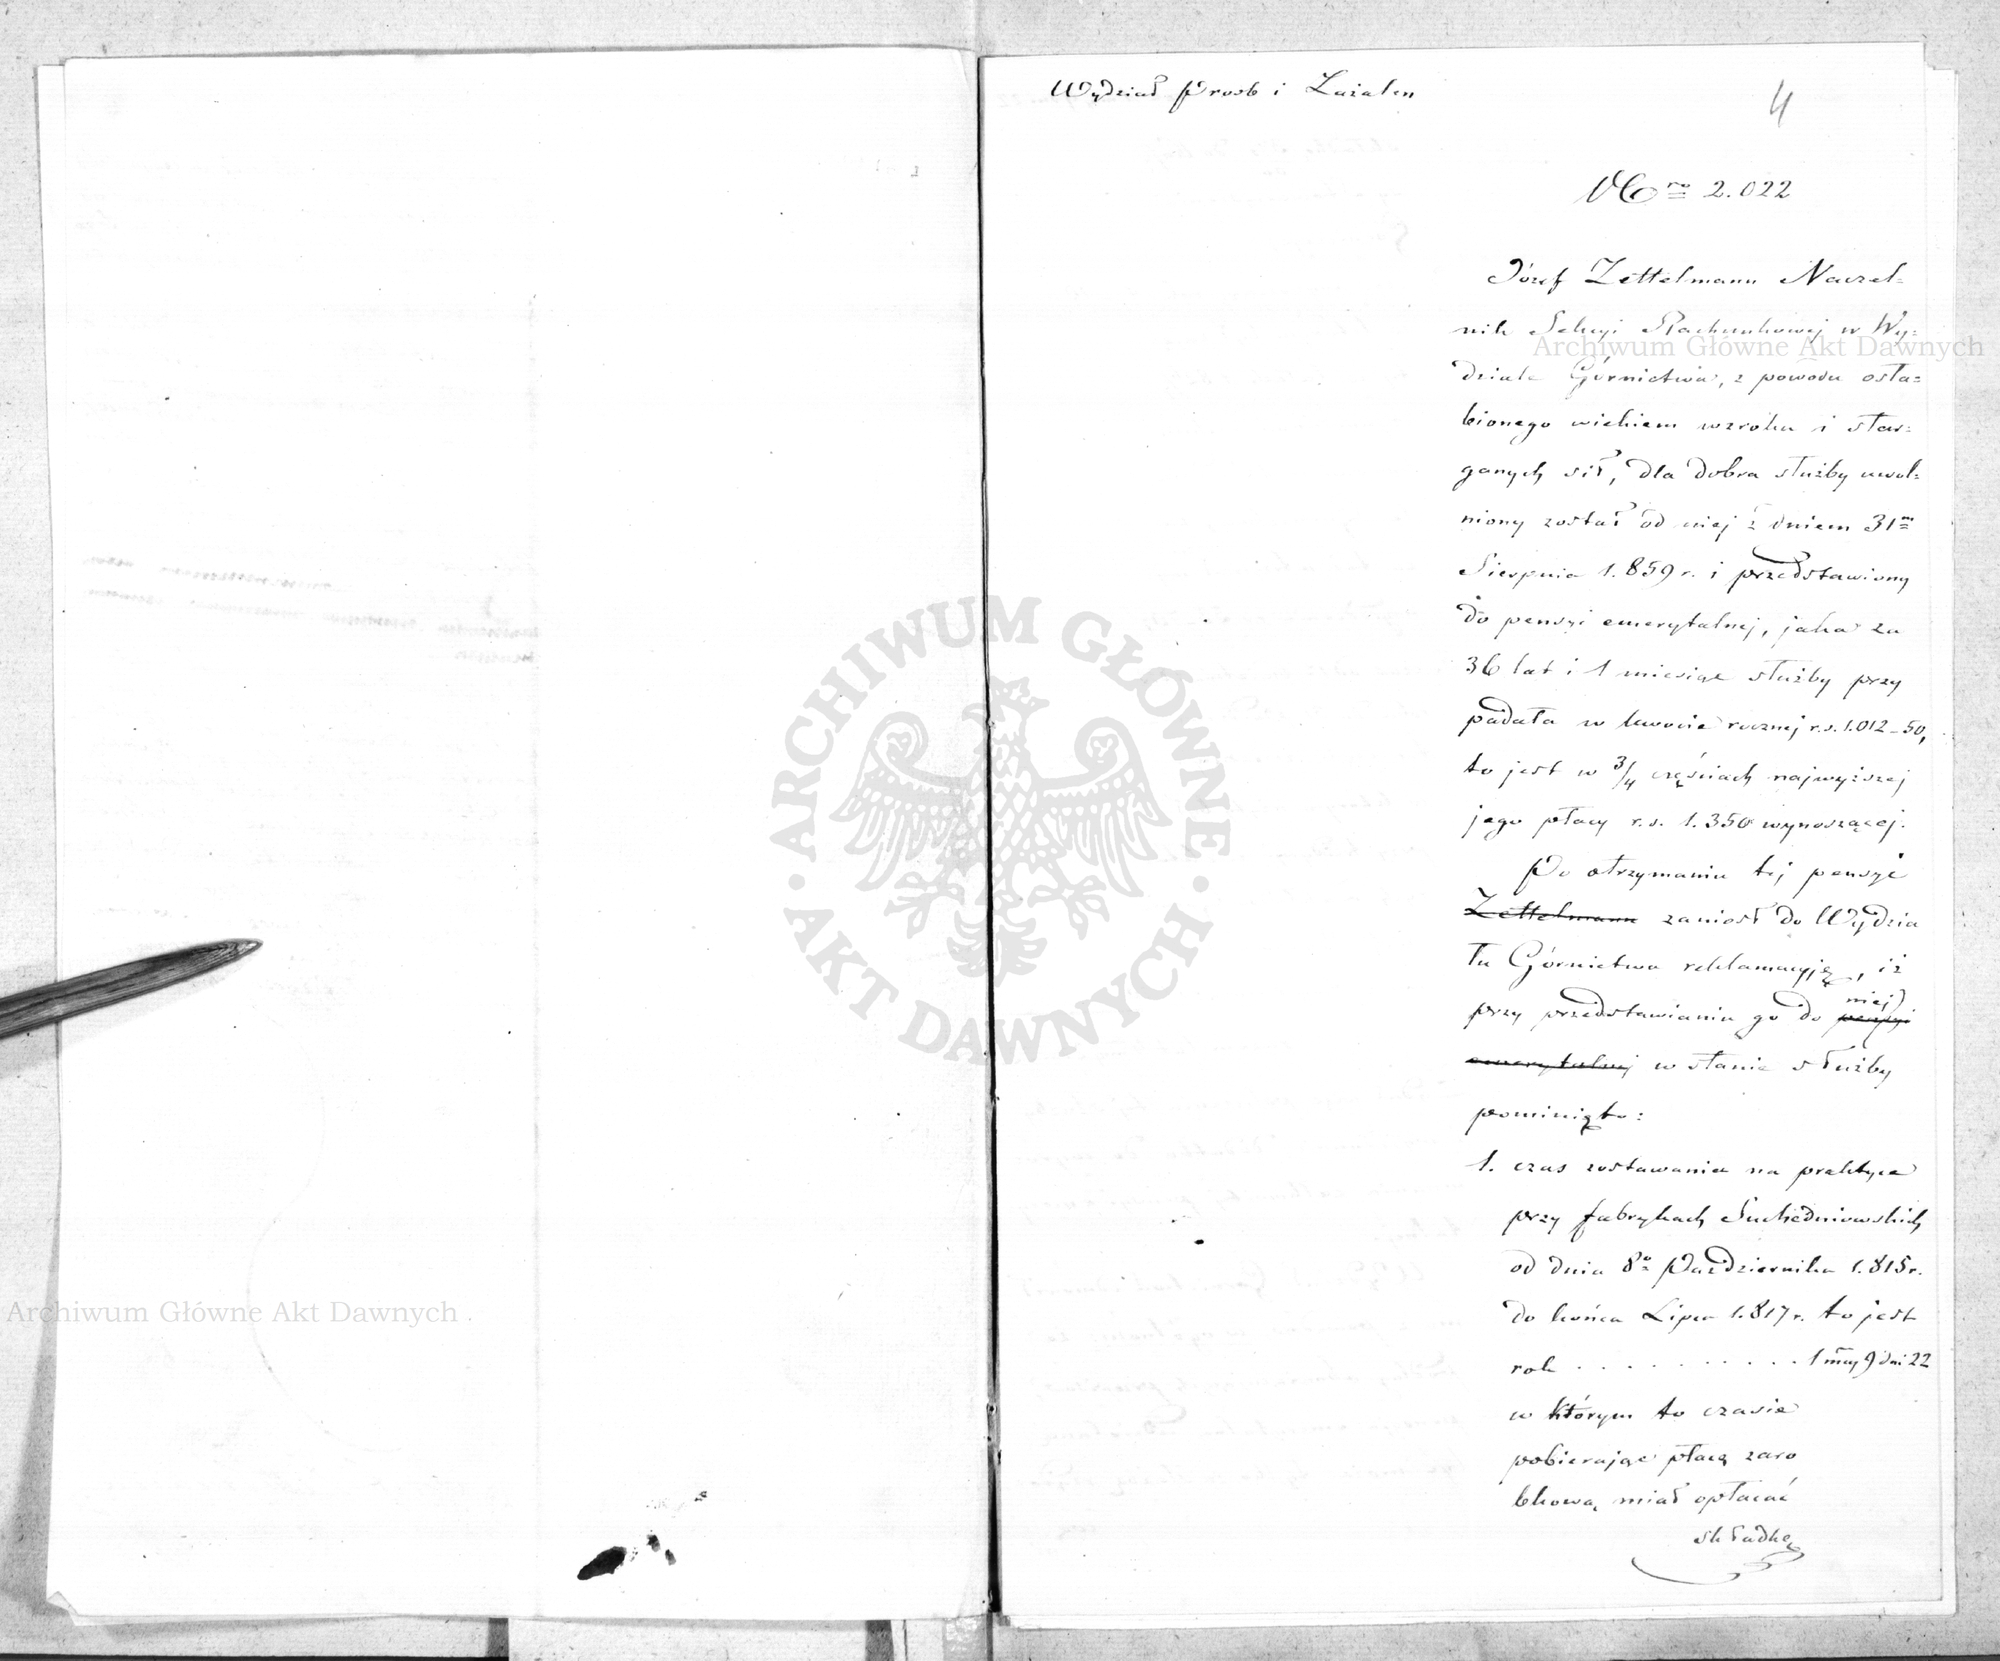 Wydział Prosb i Zażalen
4
Nro 2.022
Józef Zettelmann Naczel=
nik Sekcyi Rachunkowej w Wy=
dziale Górnictwa, z powodu osła=
bionego wiekiem wzroku i star=
ganych sił, dla dobra służby uwol=
niony został od niej z dniem 31m
Sierpnia 1.859 r. i przedstawiony
do pensyi emerytalnej, jaka za
36 lat i 1 miesiąc służby przy
padała w kwocie rocznej r.s. 1.012_50,
to jest w 3/4 częściach najwyższej
jego płacy r.s. 1.350 wynoszącej.
Po otrzymaniu tej pensyi
Zettelmann zaniosł do Wydzia
łu Górnictwa reklamacyję, iż
niej
przy przedstawianiu go do pensyi
emerytalnej w stanie służby
pominięto:
1. czas zostawania na praktyce
przy fabrykach Suchedniowskich
od dnia 8o Października 1.815 r.
do końca Lipca 1.817 r. to jest
rok . . . . . . . . . . 1 mcy 9 dni 22
w którym to czasie
pobierając płacę zaro
bkową miał opłacać
składkę
Archiwum Główne Akt Dawnych
Archiwum Główne Akt Dawnych
ARCHIWUM GŁÓWNE AKT DAWNYCH